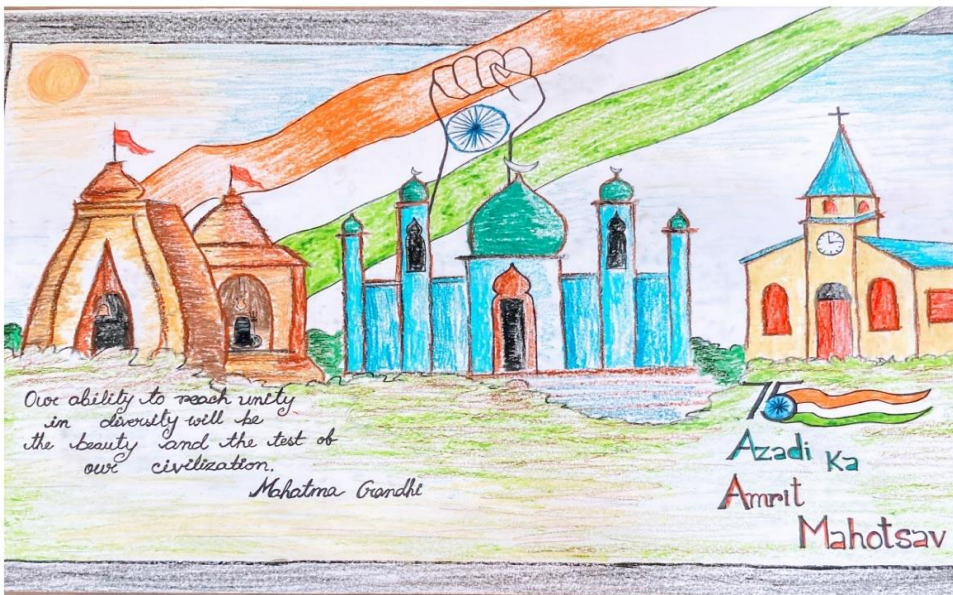 Our ability to reach unity
in diversity will be
the beauty and the test of
our civilization.
Mahatma Gandhi
75
Azadi Ka
Amrit
Mahotsav